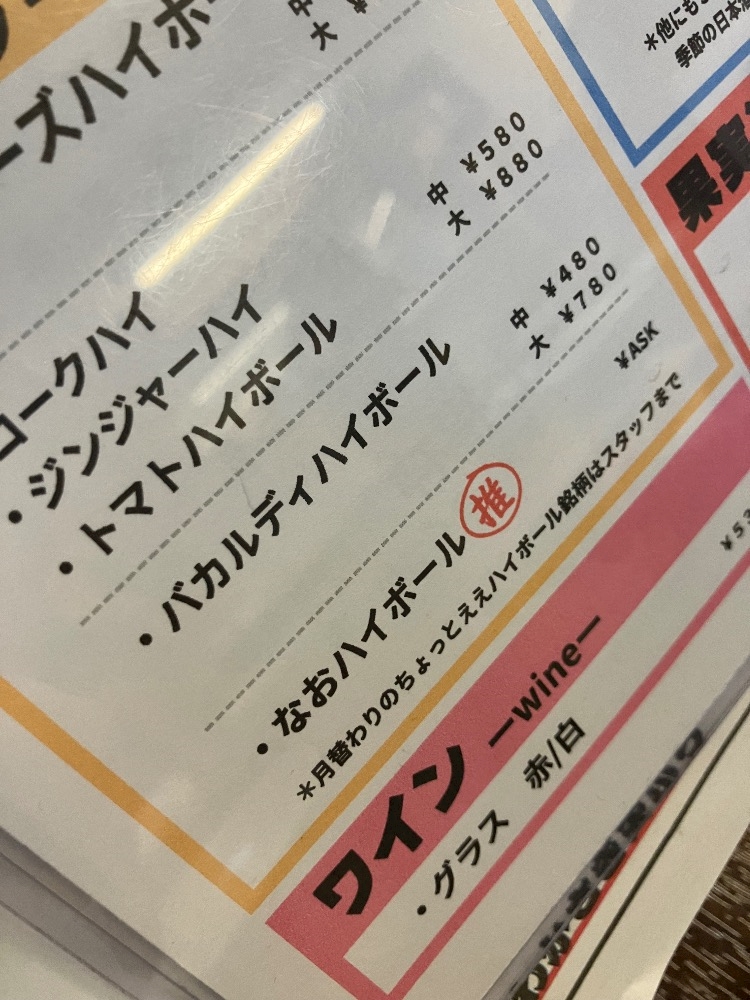 ーズハイボ
中
大 ¥
コークハイ
・ジンジャーハイ
・トマトハイボール
中 ¥580
大 ¥880
・バカルディハイボール
中 ¥480
大 ¥780
・なおハイボール 推
¥ASK
＊月替わりのちょっとええハイボール銘柄はスタッフまで
ワイン ーwineー
・グラス 赤/白
¥53
＊他にも
季節の日本酒
果実